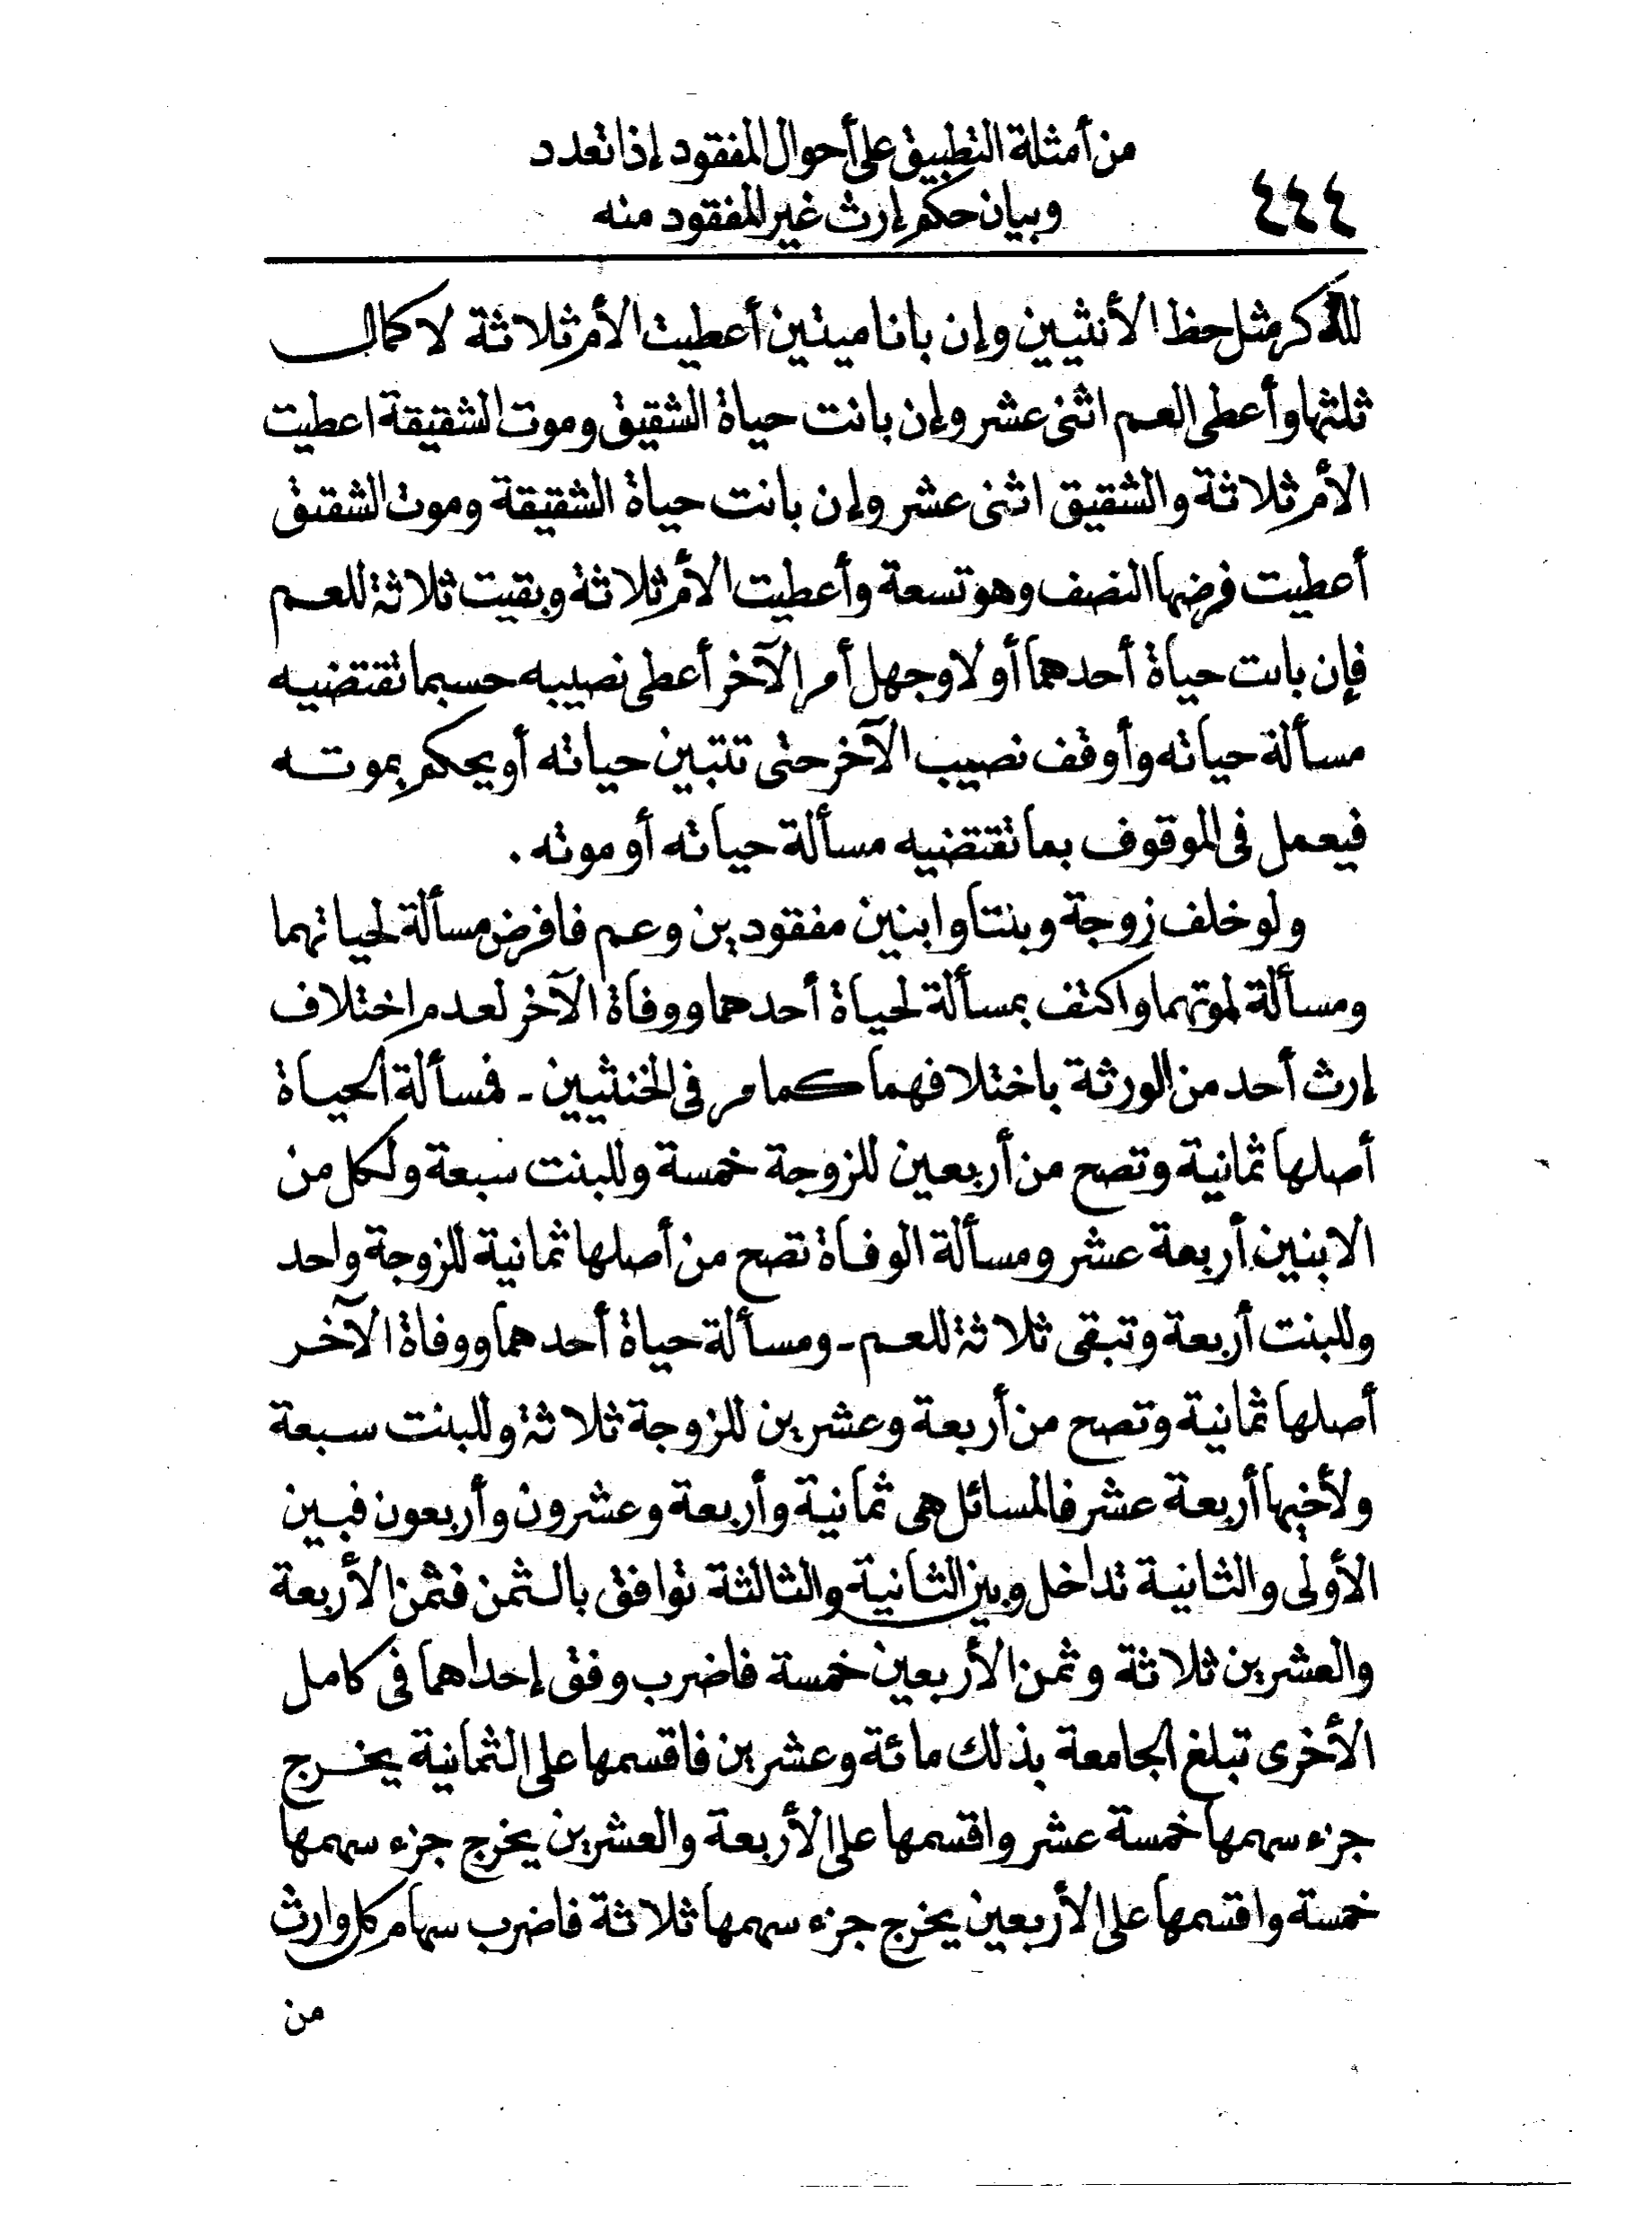 من أمثلة التطبيق على أحوال المفقود إذا تعدد
٤٤٤
وبيان حكم إرث غير المفقود منه
للذكر مثل حظ الأنثيين وإن بانا ميتين أعطيت الأم ثلاثة لا كمال
ثلثها وأعطى العم اثنى عشر وإن بانت حياة الشقيق وموت الشقيقة اعطيت
الأم ثلاثة والشقيق اثنى عشر وإن بانت حياة الشقيقة وموت الشقيق
أعطيت فرضها النصف وهو تسعة وأعطيت الأم ثلاثة وبقيت ثلاثة للعم
فإن بانت حياة أحدهما أولا وجهل أمر الآخر أعطى نصيبه حسبما تقتضيه
مسألة حياته وأوقف نصيب الآخر حتى تتبين حياته أو يحكم بموته
فيعمل فى الموقوف بما تقتضيه مسألة حياته أو موته .
ولو خلف زوجة وبنتا وابنين مفقودين وعم فافرض مسألة لحياتهما
ومسألة لموتهما واكتف بمسألة لحياة أحدهما ووفاة الآخر لعدم اختلاف
إرث أحد من الورثة باختلافهما كما مر فى الخنثيين - فمسألة الحياة
أصلها ثمانية وتصح من أربعين للزوجة خمسة وللبنت سبعة ولكل من
الابنين أربعة عشر ومسألة الوفاة تصح من أصلها ثمانية للزوجة واحد
وللبنت أربعة وتبقى ثلاثة للعم - ومسألة حياة أحدهما ووفاة الآخر
أصلها ثمانية وتصح من أربعة وعشرين للزوجة ثلاثة وللبنت سبعة
ولأخيها أربعة عشر فالمسائل هى ثمانية وأربعة وعشرون وأربعون فبين
الأولى والثانية تداخل وبين الثانية والثالثة توافق بالثمن فثمن الأربعة
والعشرين ثلاثة وثمن الأربعين خمسة فاضرب وفق إحداهما فى كامل
الأخرى تبلغ الجامعة بذلك مائة وعشرين فاقسمها على الثمانية يخرج
جزء سهمها خمسة عشر واقسمها على الأربعة والعشرين يخرج جزء سهمها
خمسة واقسمها على الأربعين يخرج جزء سهمها ثلاثة فاضرب سهام كل وارث
من